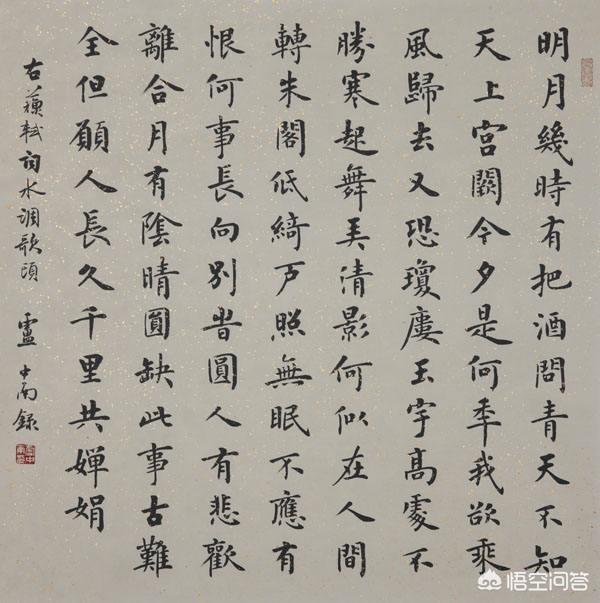 明月幾時有把酒問青天不知
天上宮闕今夕是何秊我欲乘
風歸去又恐瓊廔玉宇高處不
勝寒起舞弄清影何似在人間
轉朱閣低綺戶照無眠不應有
恨何事長向別旹圓人有悲歡
離合月有陰晴圓缺此事古難
全但願人長久千里共嬋娟
右蘇軾詞水調歌頭 盧中南錄
悟空问答